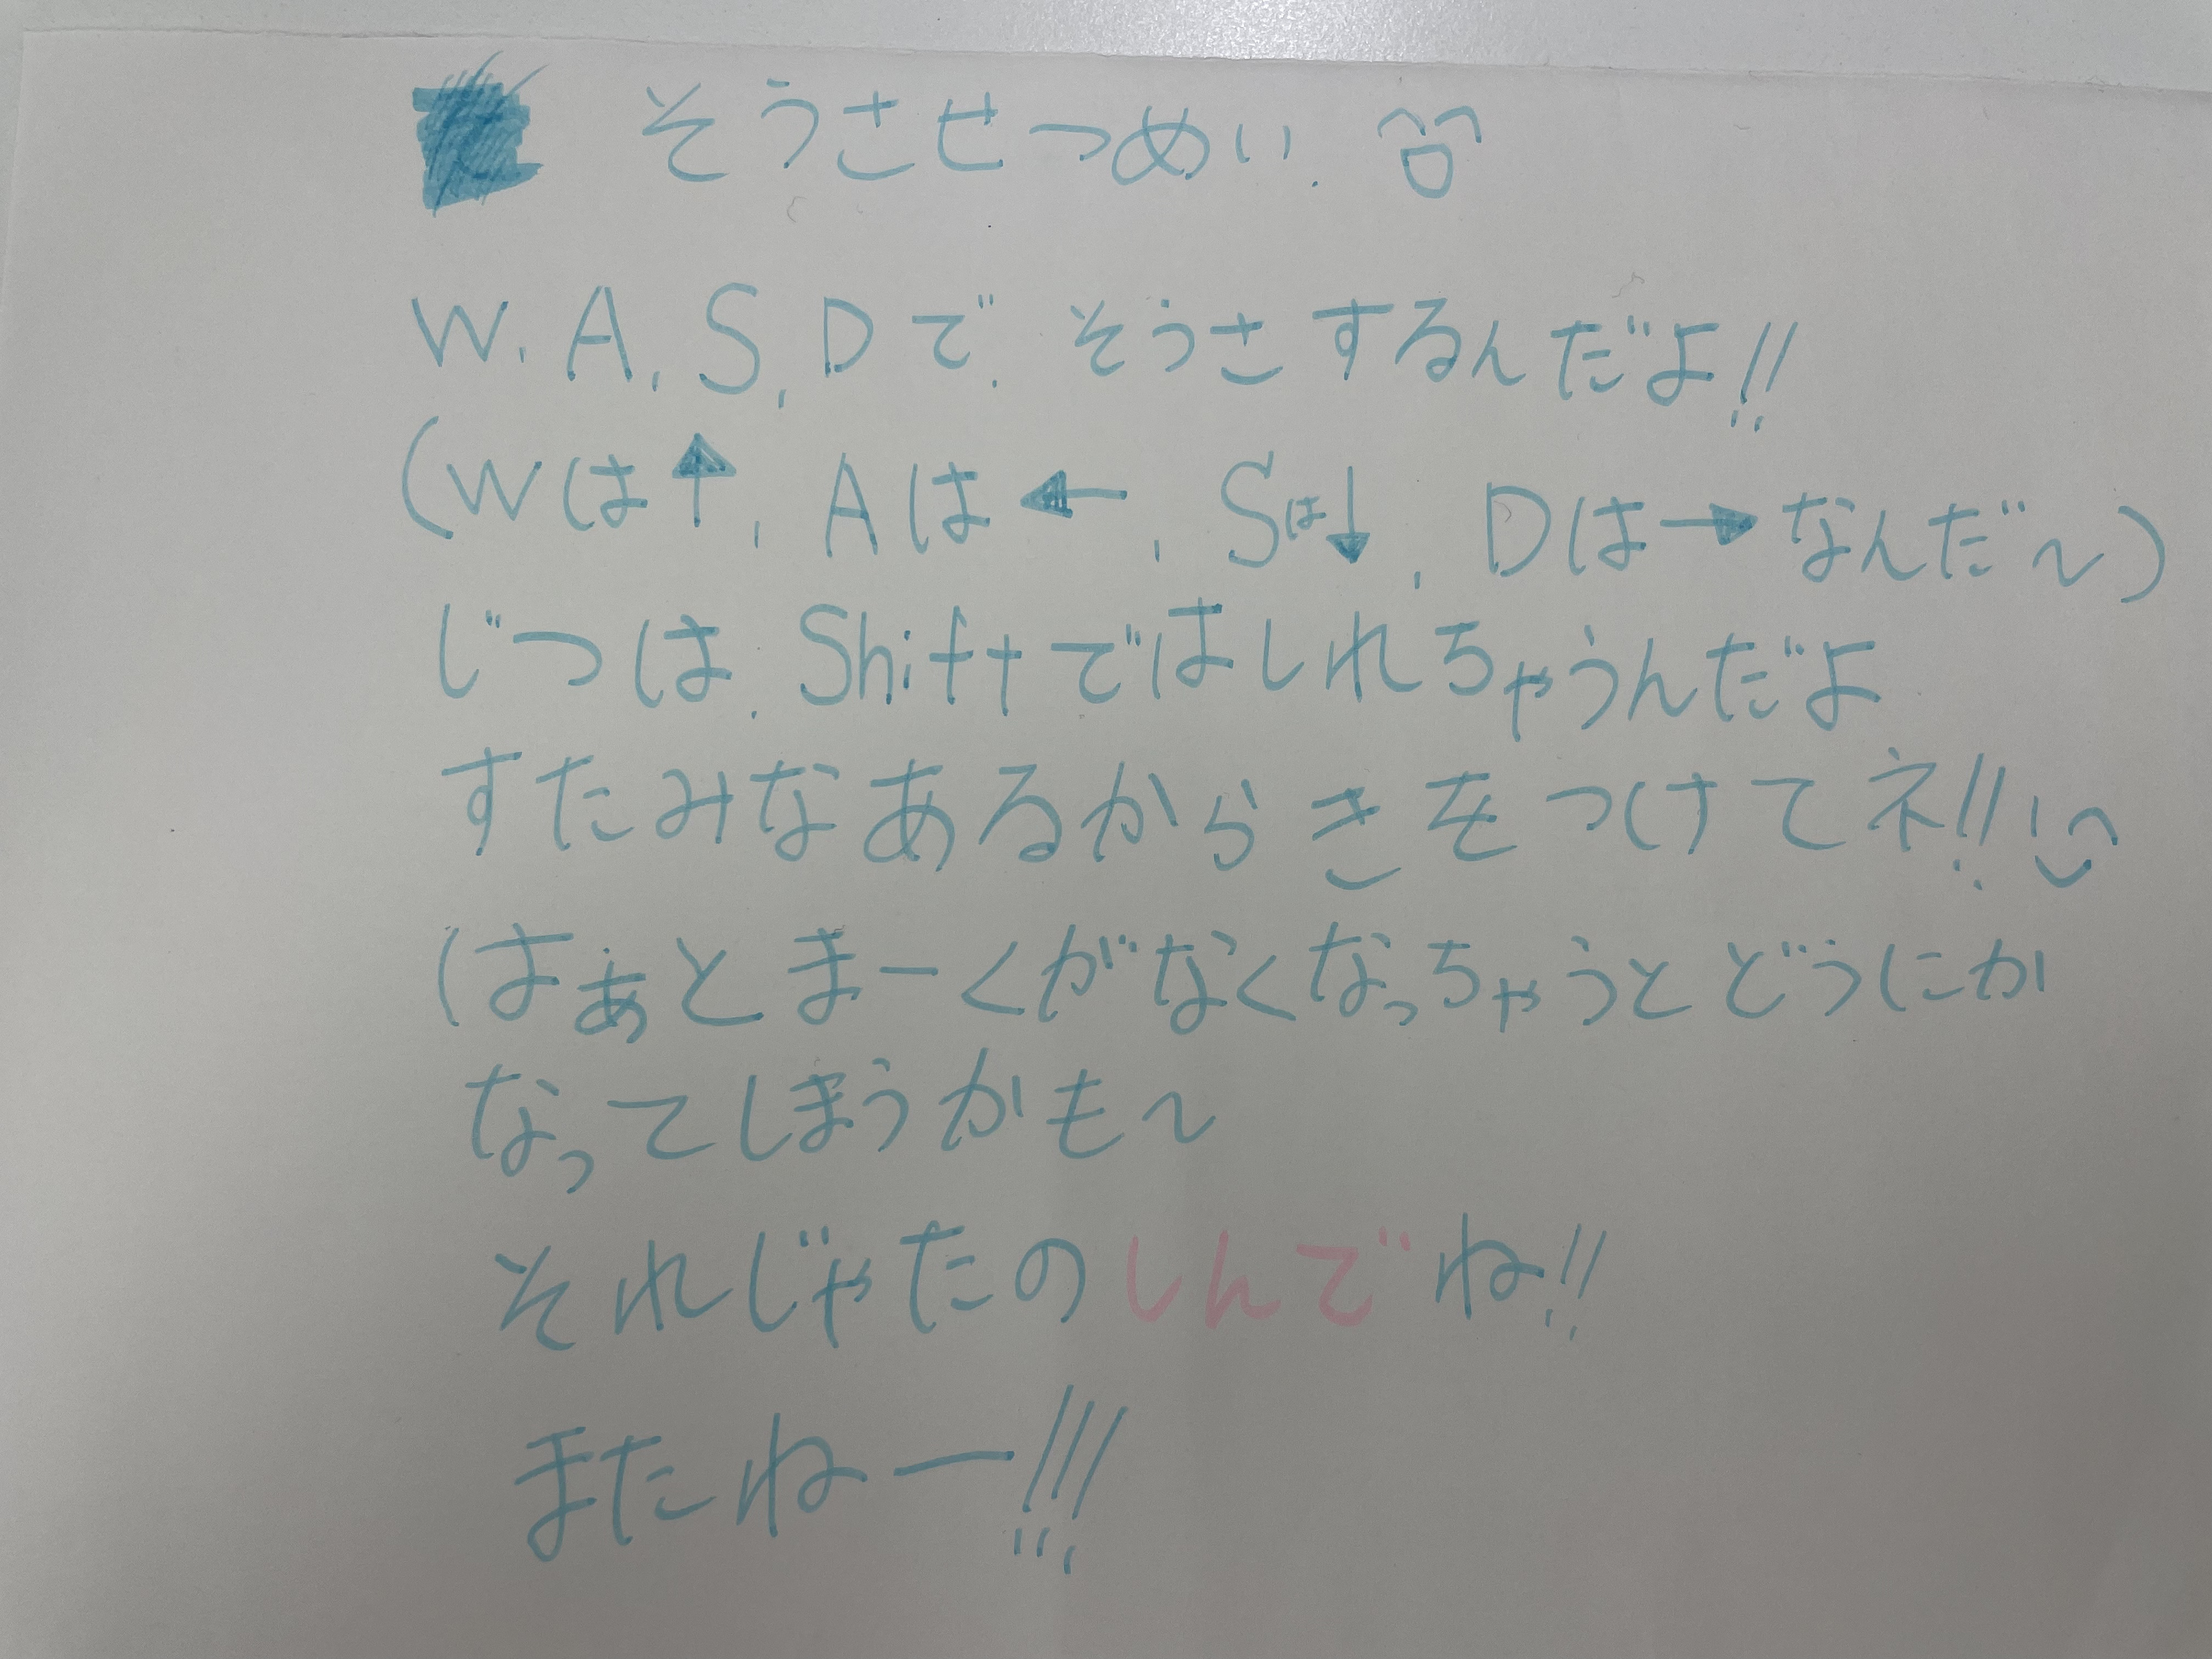 そうさせつめい.
W, A, S, Dで, そうさするんだよ!!
(Wは↑, Aは←, Sは↓, Dは→なんだ~)
じつは, Shiftではしれちゃうんだよ
すたみなあるからきをつけてネ!!
(はぁとまーくがなくなっちゃうとどうにか
なってしまうかも~
それじゃたのしんでね!!
またねー!!!